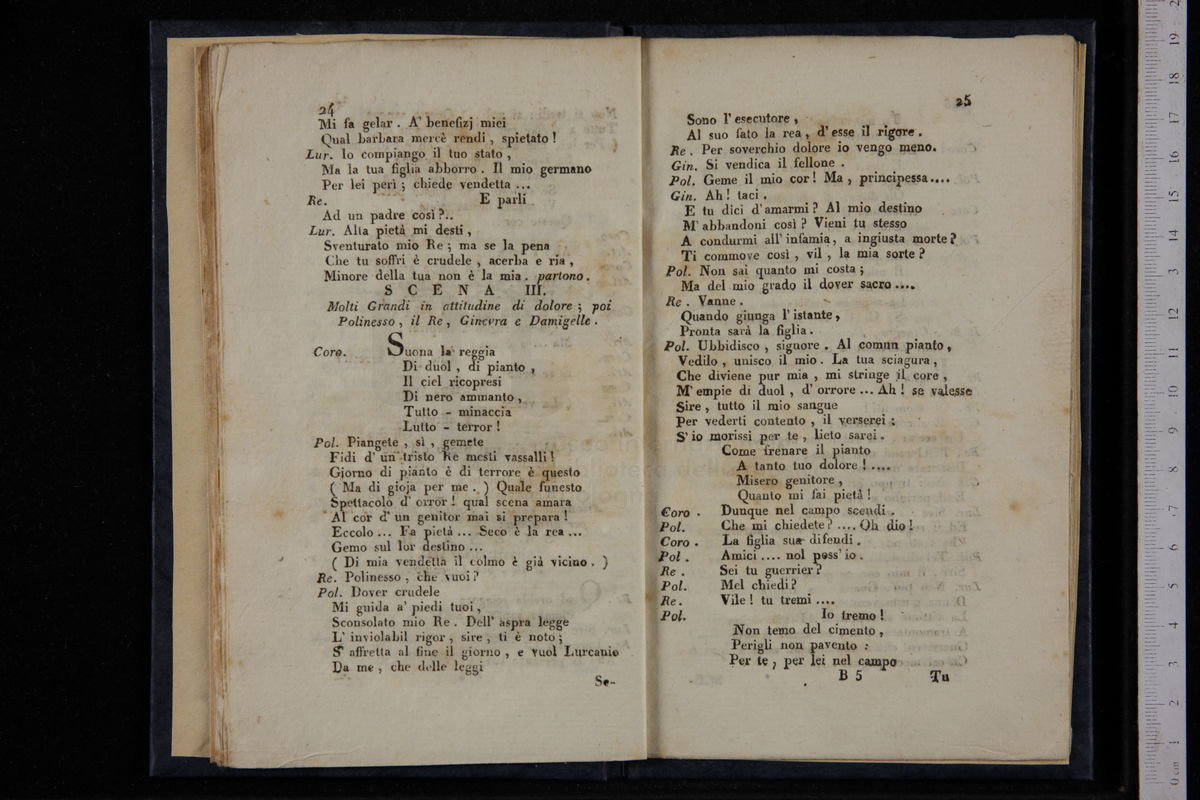 24
Mi fa gelar . A' benefizj miei
Qual barbara mercè rendi , spietato !
Lur. Io compiango il tuo stato ,
Ma la tua figlia abborro . Il mio germano
Per lei perì ; chiede vendetta ...
Re. E parli
Ad un padre così ?..
Lur. Alta pietà mi desti ,
Sventurato mio Re ; ma se la pena
Che tu soffri è crudele , acerba e ria ,
Minore della tua non è la mia . partono .
SCENA III.
Molti Grandi in attitudine di dolore ; poi
Polinesso , il Re , Ginevra e Damigelle .
Coro. Suona la reggia
Di duol , di pianto ,
Il ciel ricopresi
Di nero ammanto ,
Tutto - minaccia
Lutto - terror !
Pol. Piangete , sì , gemete
Fidi d' un tristo Re mesti vassalli !
Giorno di pianto è di terrore è questo
( Ma di gioja per me . ) Quale funesto
Spettacolo d' orror ! qual scena amara
Al cor d' un genitor mai si prepara !
Eccolo ... Fa pietà ... Seco è la rea ...
Gemo sul lor destino ...
( Di mia vendetta il colmo è già vicino . )
Re. Polinesso , che vuoi ?
Pol. Dover crudele
Mi guida a' piedi tuoi ,
Sconsolato mio Re . Dell' aspra legge
L' inviolabil rigor , sire , ti è noto ;
S' affretta al fine il giorno , e vuol Lurcanio
Da me , che delle leggi
Se-
25
Sono l' esecutore ,
Al suo fato la rea , d' esse il rigore .
Re . Per soverchio dolore io vengo meno.
Gin. Si vendica il fellone .
Pol. Geme il mio cor ! Ma , principessa....
Gin. Ah ! taci .
E tu dici d' amarmi ? Al mio destino
M' abbandoni così ? Vieni tu stesso
A condurmi all' infamia , a ingiusta morte ?
Ti commove così , vil , la mia sorte ?
Pol. Non sai quanto mi costa ;
Ma del mio grado il dover sacro ....
Re . Vanne .
Quando giunga l' istante ,
Pronta sarà la figlia .
Pol. Ubbidisco , signore . Al comun pianto ,
Vedilo , unisco il mio . La tua sciagura ,
Che diviene pur mia , mi stringe il core ,
M' empie di duol , d' orrore ... Ah ! se valesse
Sire , tutto il mio sangue
Per vederti contento , il verserei ;
S' io morissi per te , lieto sarei .
Come frenare il pianto
A tanto tuo dolore ! ....
Misero genitore ,
Quanto mi fai pietà !
Coro . Dunque nel campo scendi .
Pol. Che mi chiedete ? .... Oh dio !
Coro . La figlia sua difendi .
Pol . Amici .... nol poss' io .
Re . Sei tu guerrier ?
Pol. Mel chiedi ?
Re. Vile ! tu tremi ....
Pol. Io tremo !
Non temo del cimento ,
Perigli non pavento :
Per te , per lei nel campo
B 5 Tu